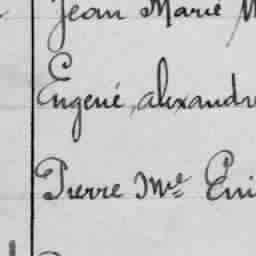 Jean Marie
Eugené, alexandre
Pierre Mie